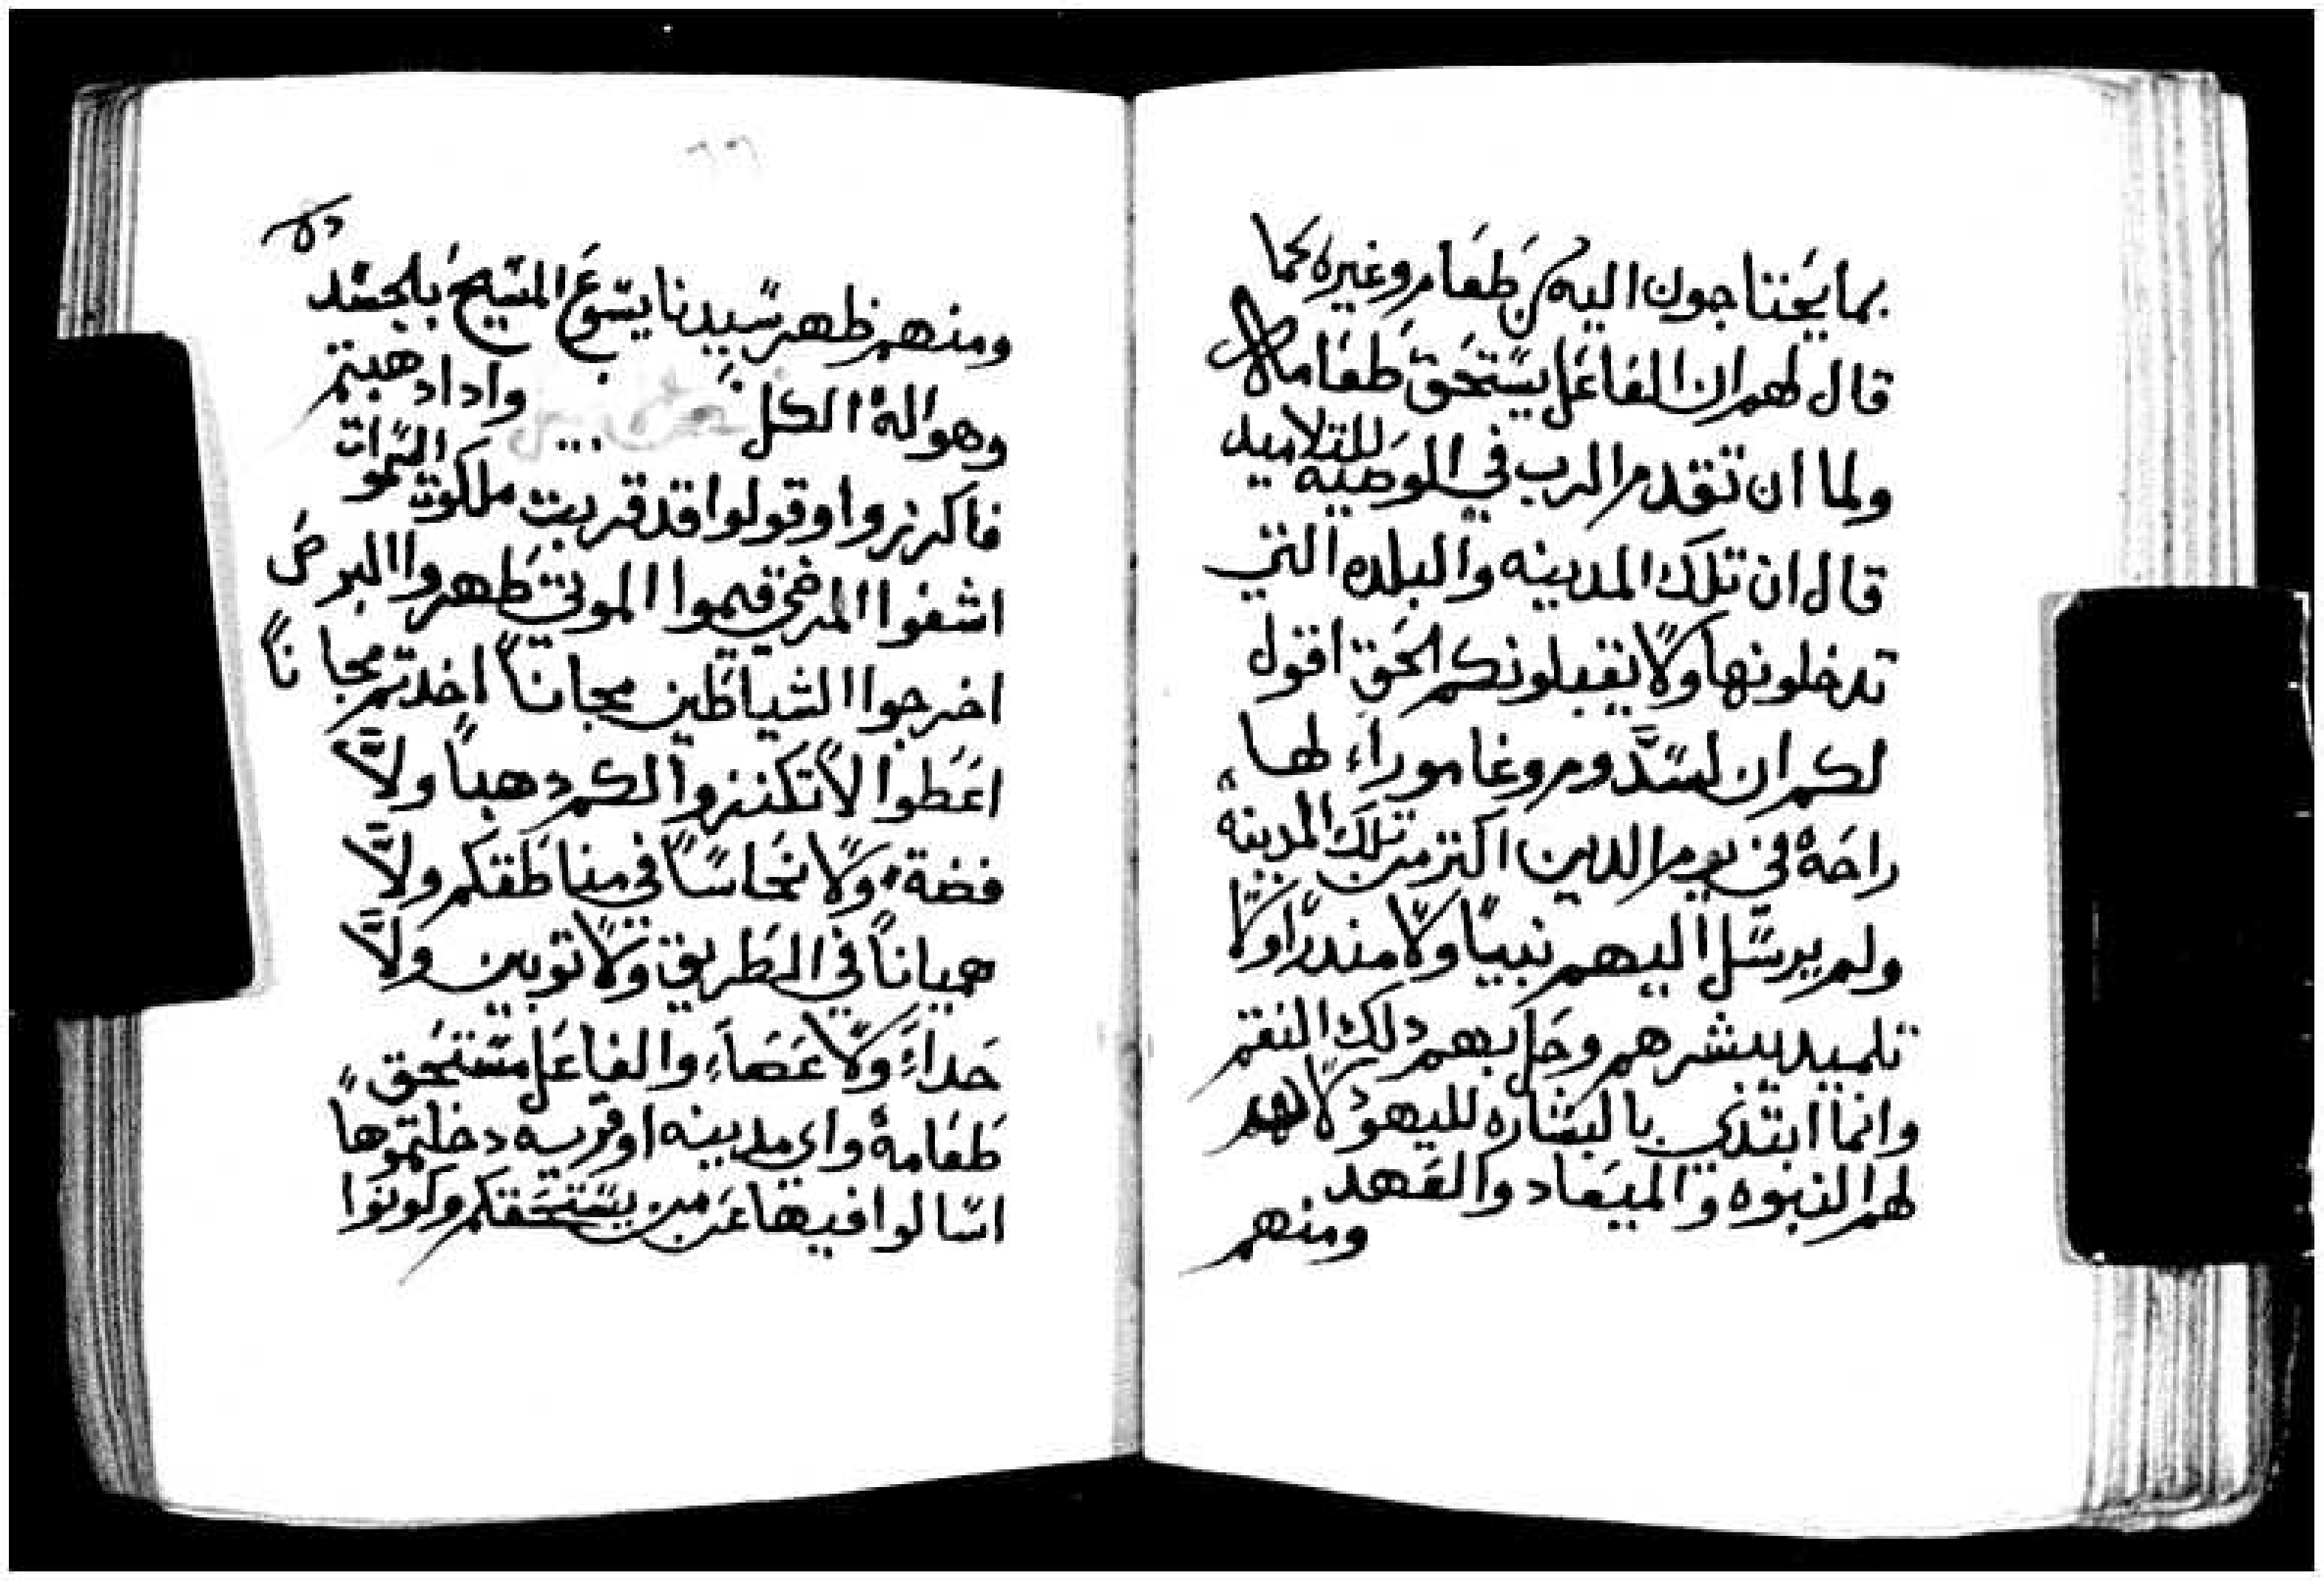 بما يحتاجون اليه من طعام وغيره كما
قال لهم ان الفاعل يستحق طعامه
ولما ان تقدم الرب في الوصيه للتلاميد
قال ان تلك المدينه والبلده التي
تدخلونها ولا يقبلونكم الحق اقول
لكم ان لسدوم وغامورا لها
راحة في يوم الدين اكتر من تلك المدينة
ولم يرسل اليهم نبيا ولا مندرا ولا
تلميد يبشرهم وحل بهم دلك النقم
وانما ابتدي بالبشاره لليهود لا
لهم النبوه والميعاد والعهد
ومنهم
٦٦
ومنهم ظهر سيدنا يسوع المسيح بالجسد
وهو اله الكل واداد هبتم
فاكرزوا وقولوا قد قربت ملكوت السموات
اشفوا المرضي قيموا الموتي طهروا البرص
اخرجوا الشياطين مجاناً اخدتم مجاناً
اعطوا لا تكنزوا لكم دهباً ولا
فضة ولا نحاساً في مناطقكم ولا
همياناً في الطريق ولا توبين ولا
حداء ولا عصاء والفاعل مستحق
طعامة واي مدينه او قريه دخلتموها
اسالوا فيها عن من يستحقكم وكونوا